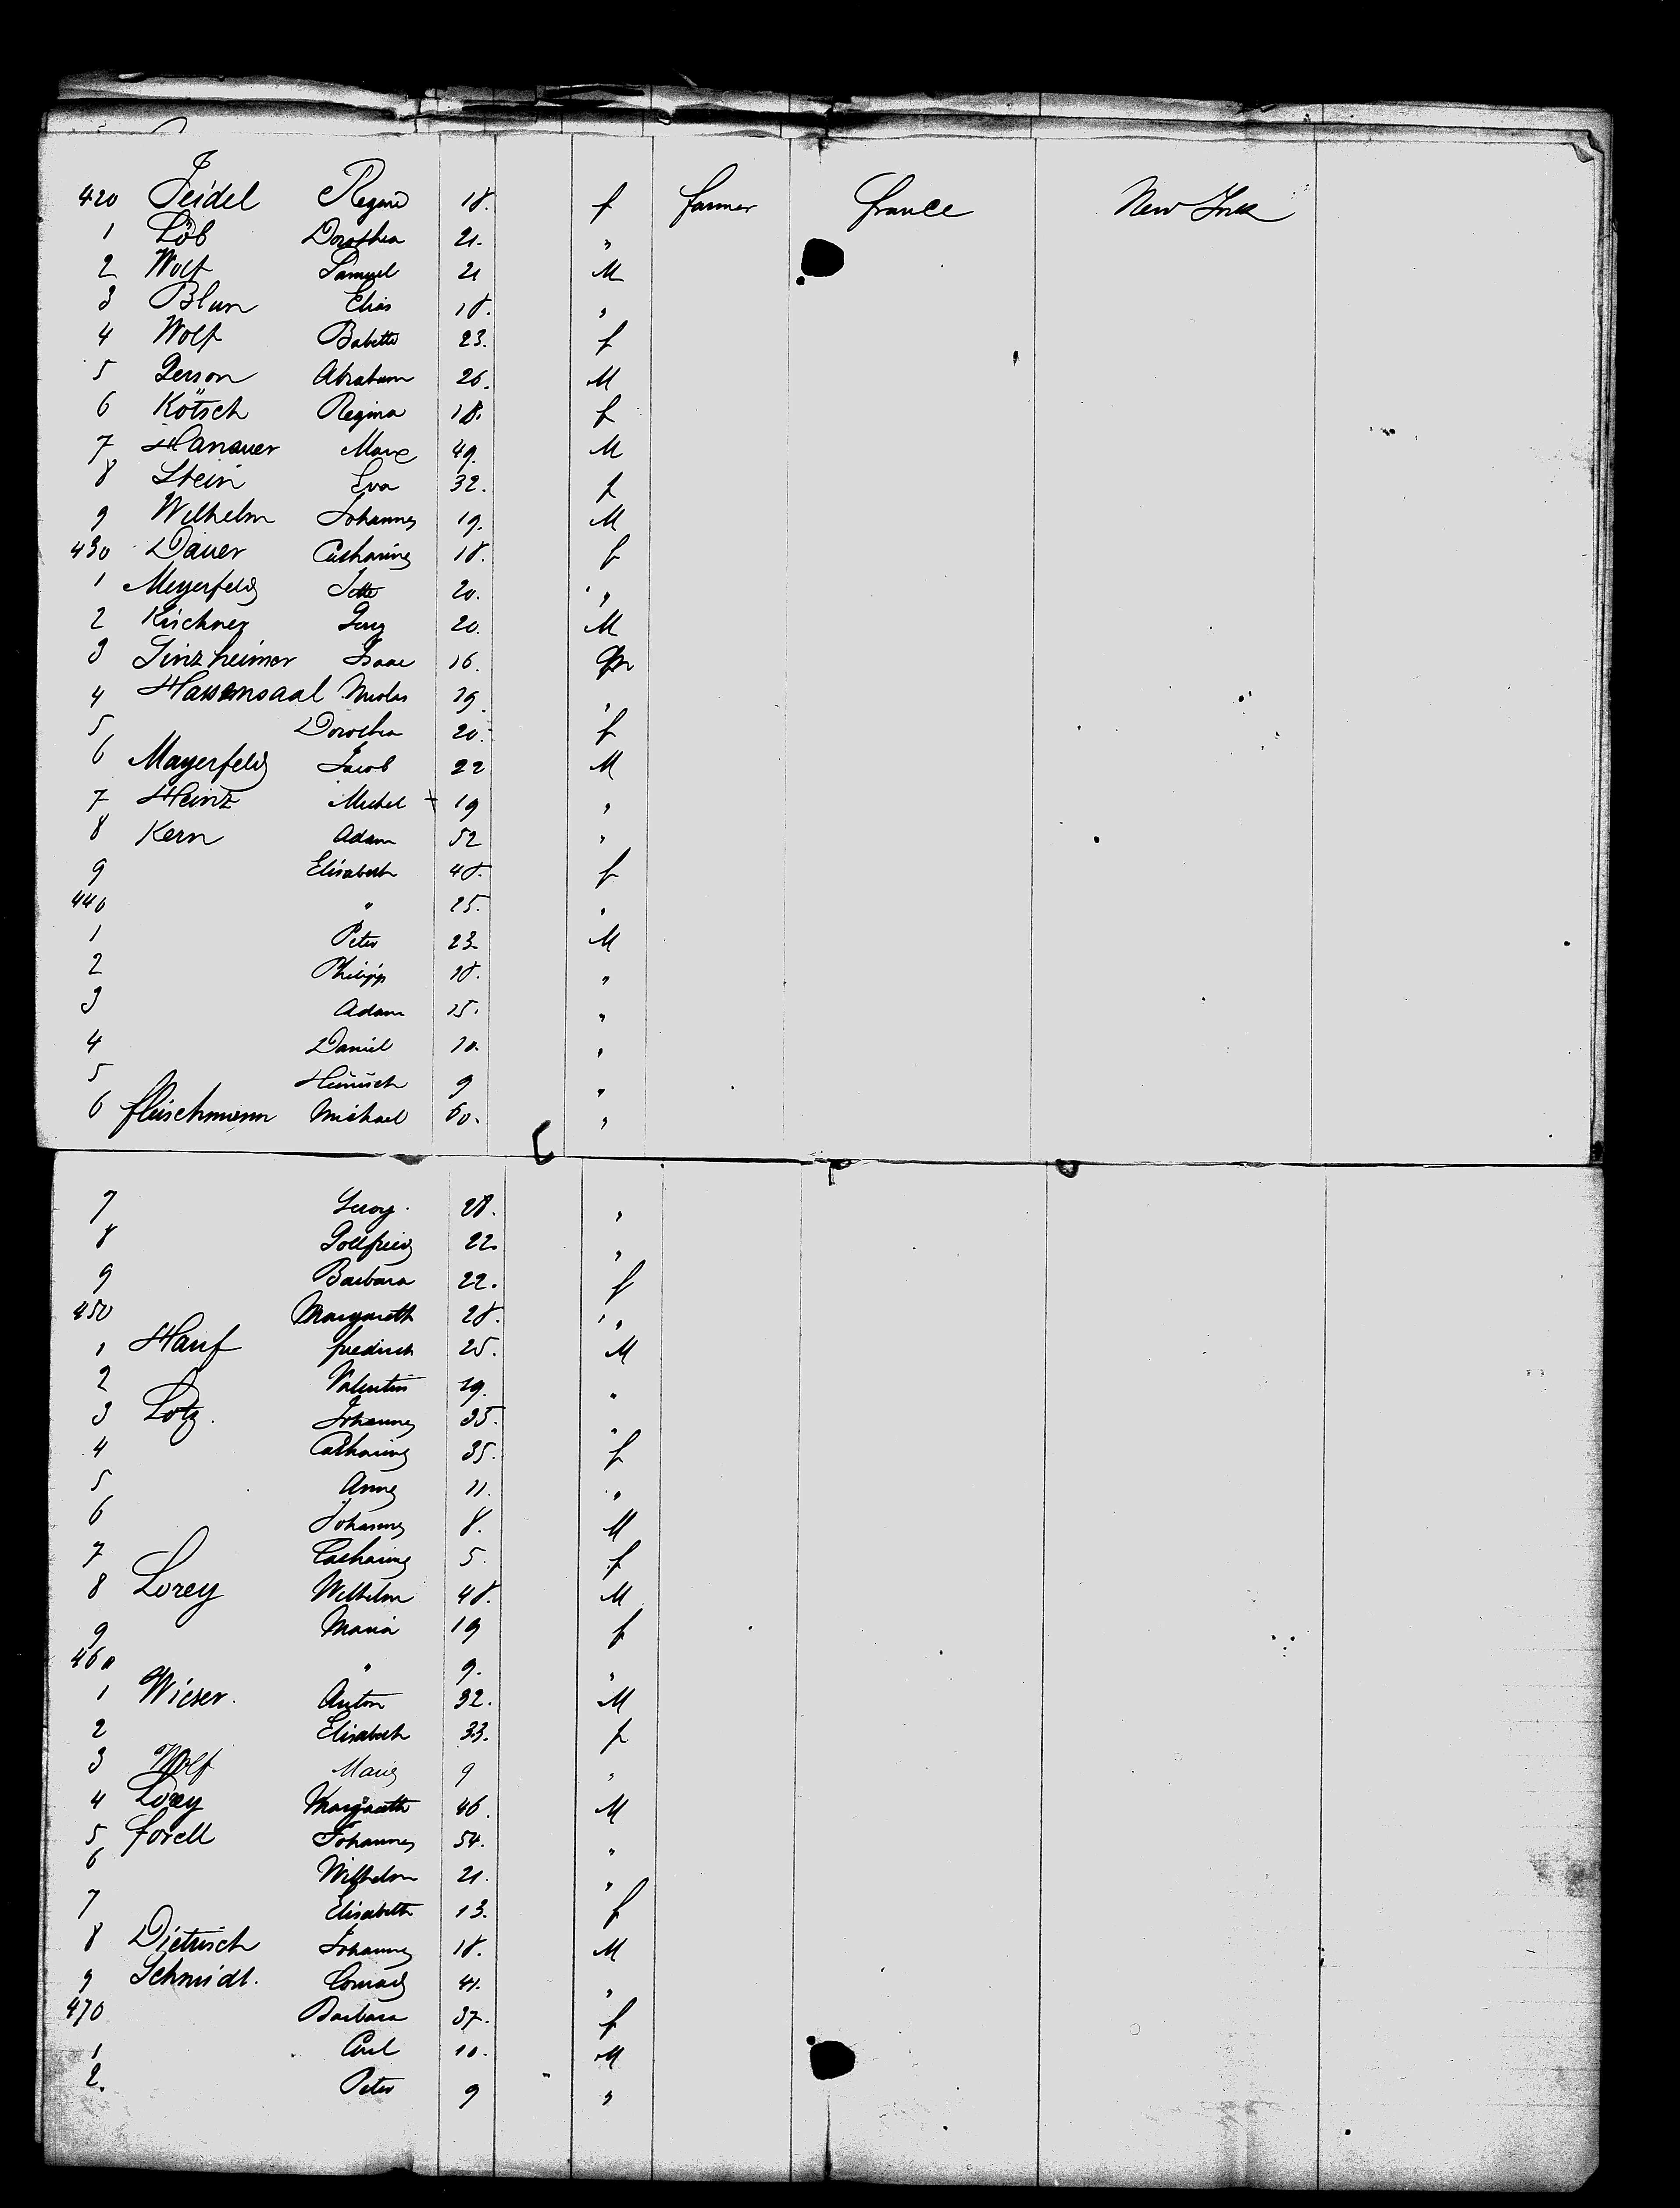 420 Seidel Regine 18. f farmer france New York
1 Löb Dorothea 21. "
2 Wolf Samuel 21 M
3 Blum Elias 18. "
4 Wolf Babette 23. f
5 Gerson Abraham 26. M
6 Kötsch Regina 18. f
7 Hanauer Marx 49. M
8 Stein Eva 32. f
9 Wilhelm Johannes 19. M
430 Dauer Catharina 18. f
1 Meyerfeld Jette 20. "
2 Kirchner Georg 20. M
3 Sinzheimer Isaac 16. M
4 Nicolas 19. "
5 Dorothea 20. f
6 Mayerfeld Jacob 22 M
7 Heinz Michel + 19 "
8 Kern Adam 52 "
9 Elisabeth 48. f
440 " 25. "
1 Peter 23 M
2 Philipp 18. "
3 Adam 15. "
4 Daniel 10. "
5 Heinrich 9 "
6 fleischmann Michael 60. "
7 Georg. 28. "
8 Gottfried 22. "
9 Barbara 22. f
450 Margareth 28. "
1 Hauf friedrich 25. M
2 Valentin 19. "
3 Lotz. Johannes 35. "
4 Catharina 35. f
5 Anna 11. "
6 Johannes 8. M
7 Catharina 5. f
8 Lorey Wilhelm 48. M
9 Maria 19 f
460 " 9. "
1 Wieser. Anton 32. M
2 Elisabeth 33. f
3 Wolf Maria 9 "
4 Lorey Margareth 46. M
5 forell Johannes 54. "
6 Wilhelm 21. "
7 Elisabeth 13. f
8 Dietrich Johannes 18. M
9 Schmidt. Conrad 41. "
470 Barbara 37. f
1 Carl 10. M
2. Peter 9 "